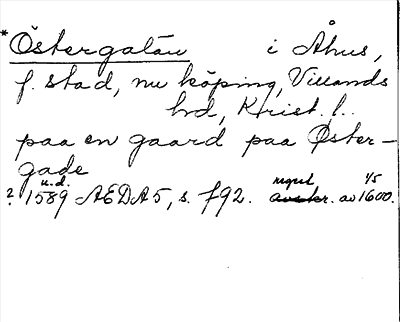 *Östergatan i Åhus,
f. stad, nu köping, Villands
hrd, Krist. l..
paa en gaard paa Øster-
gade
u.d.
? 1589 AEDA 5, s. 792. avskr. av 1600.
1/5